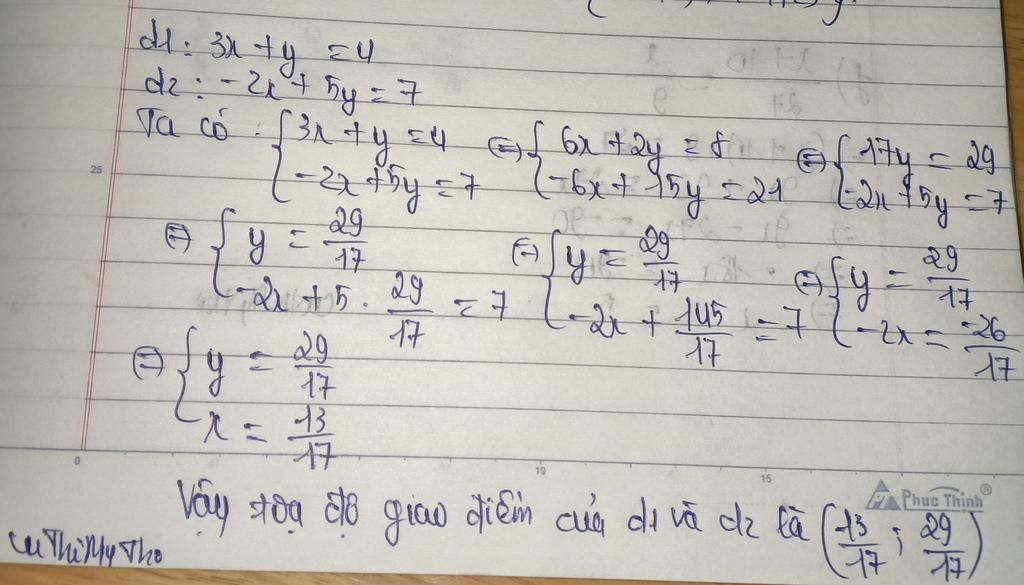 d1: 3x + y = 4
d2: -2x + 5y = 7
Ta có: { 3x + y = 4 ; -2x + 5y = 7 (=) { 6x + 2y = 8 ; -6x + 15y = 21 (=) { 17y = 29 ; -2x + 5y = 7
(=) { y = 29/17 ; -2x + 5 . 29/17 = 7 (=) { y = 29/17 ; -2x + 145/17 = 7 (=) { y = 29/17 ; -2x = -26/17
(=) { y = 29/17 ; x = 13/17
Vậy tọa độ giao điểm của d1 và d2 là (13/17 ; 29/17)
25
0 10 15
Phuc Thinh®